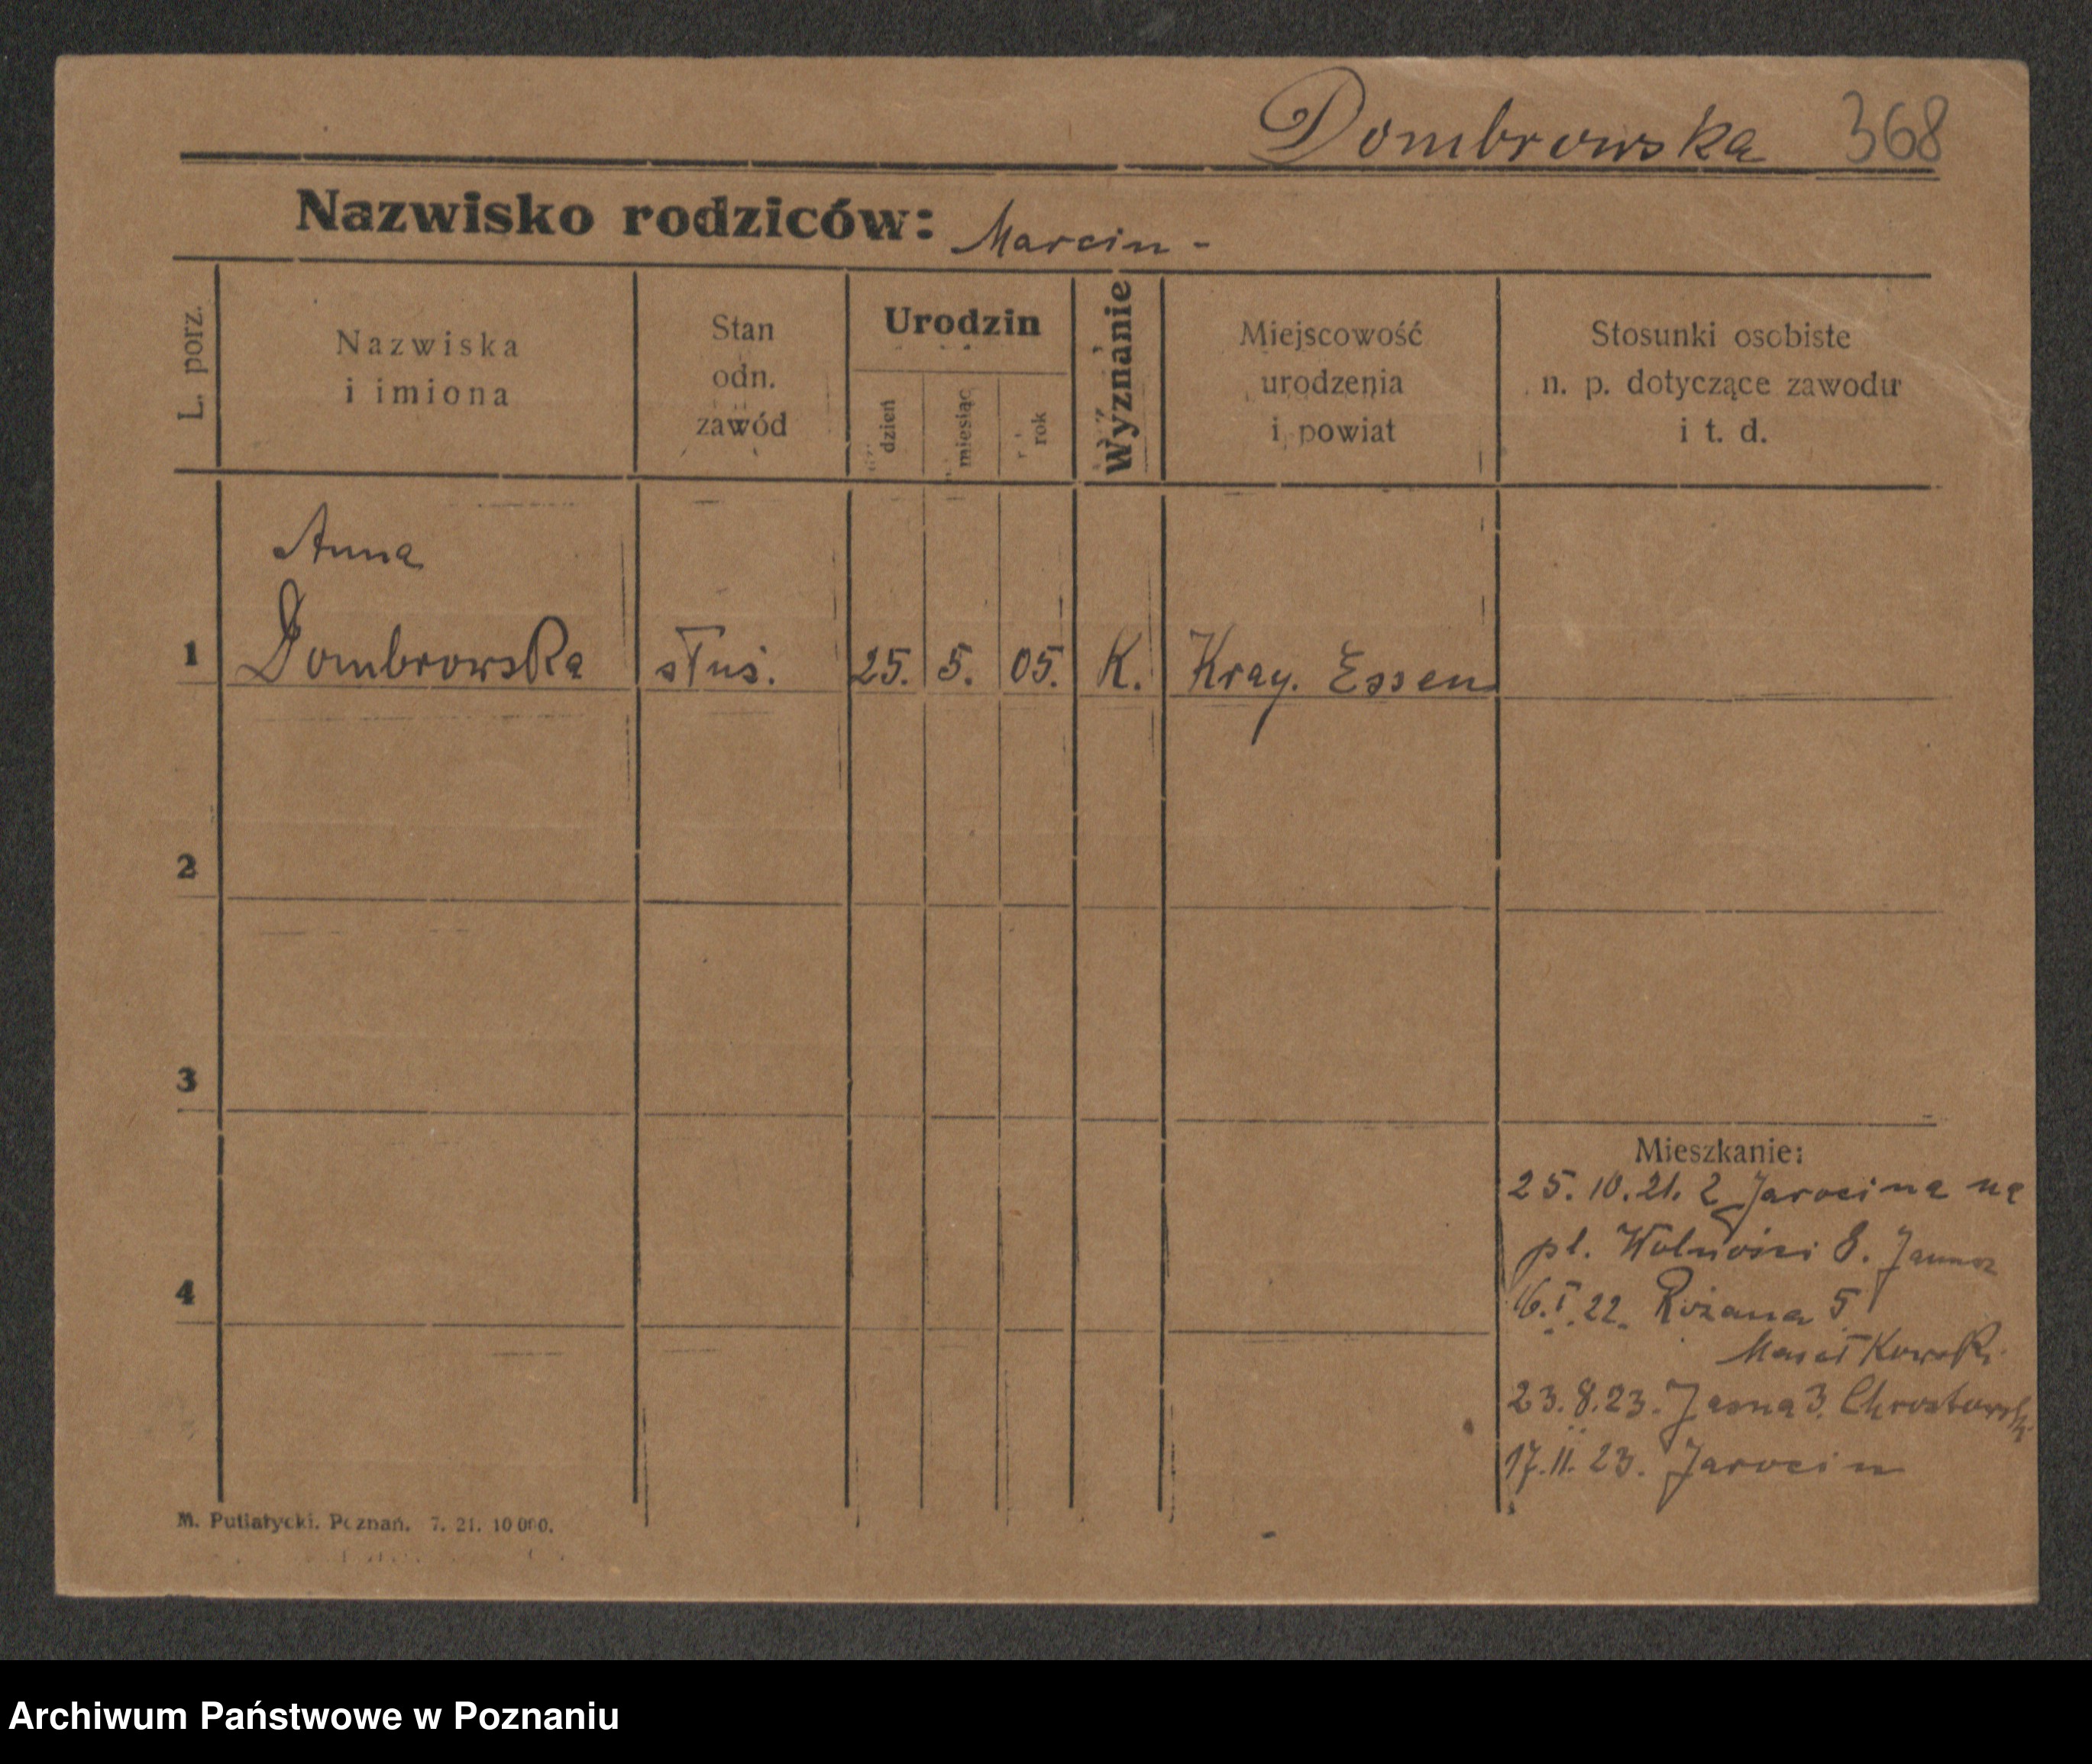 Dombrowska 368
Nazwisko rodziców: Marcin -
L. porz.
Nazwiska
i imiona
Stan
odn.
zawód
Urodzin
dzień
miesiąc
rok
Wyznanie
Miejscowość
urodzenia
i powiat
Stosunki osobiste
n. p. dotyczące zawodu
i t. d.
Anna
1 Dombrowska słuś. 25. 5. 05. K. Kray. Essen
2
3
4
Mieszkanie:
25.10.21. z Jarocina na
pl. Wolności 8.
16.I.22. Różana 5
23.8.23. Jasna 3. Chrostowski
17.11.23. Jarocin
M. Putiatycki. Poznań. 7. 21. 10 000.
Archiwum Państwowe w Poznaniu